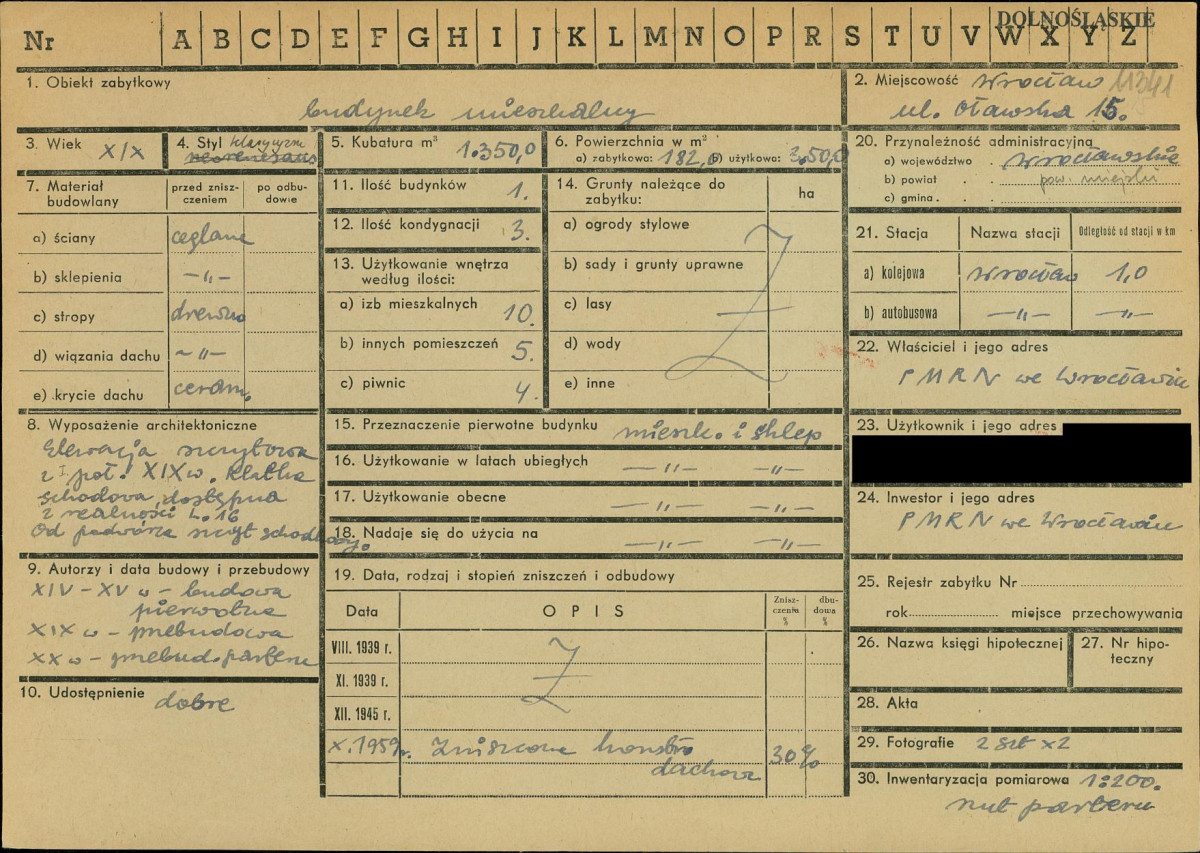 Nr A B C D E F G H I J K L M N O P R S T U V W X Y Z
DOLNOŚLĄSKIE
1. Obiekt zabytkowy
budynek mieszkalny
2. Miejscowość Wrocław 11341
ul. Oławska 15.
3. Wiek XIX
4. Styl klasycyzm
neorenesans
5. Kubatura m³ 1.350,0
6. Powierzchnia w m²
a) zabytkowa: 182,0 b) użytkowa: 2.50,0
7. Materiał budowlany
przed zniszczeniem
po odbudowie
a) ściany ceglane
b) sklepienia —„—
c) stropy drewno
d) wiązania dachu —„—
e) krycie dachu ceram.
8. Wyposażenie architektoniczne
Elewacja szczytowa
z I poł. XIX w. Klatka
schodowa dostępna
z realności L. 16
Od podwórza szczyt schodkowy.
9. Autorzy i data budowy i przebudowy
XIV – XV w – budowa
pierwotna
XIX w – przebudowa
XX w – przebud. parteru
10. Udostępnienie dobre
11. Ilość budynków 1.
12. Ilość kondygnacji 3.
13. Użytkowanie wnętrza
według ilości:
a) izb mieszkalnych 10.
b) innych pomieszczeń 5.
c) piwnic 4.
14. Grunty należące do
zabytku:
ha
a) ogrody stylowe
b) sady i grunty uprawne
c) lasy
d) wody
e) inne
15. Przeznaczenie pierwotne budynku mieszk. i sklep
16. Użytkowanie w latach ubiegłych —„— —„—
17. Użytkowanie obecne —„— —„—
18. Nadaje się do użycia na —„— —„—
19. Data, rodzaj i stopień zniszczeń i odbudowy
Data OPIS Zniszczenia % dbudowa %
VIII. 1939 r.
XI. 1939 r.
XII. 1945 r.
X. 1959 r. Zniszczona konstr.
dachowa 30%
20. Przynależność administracyjna
a) województwo wrocławskie
b) powiat pow. miejski
c) gmina
21. Stacja Nazwa stacji Odległość od stacji w km
a) kolejowa Wrocław 1,0
b) autobusowa —„— —„—
22. Właściciel i jego adres
PMRN we Wrocławiu
23. Użytkownik i jego adres
24. Inwestor i jego adres
PMRN we Wrocławiu
25. Rejestr zabytku Nr
rok miejsce przechowywania
26. Nazwa księgi hipotecznej
27. Nr hipoteczny
28. Akta
29. Fotografie 2 szt x2
30. Inwentaryzacja pomiarowa 1:200.
rzut parteru